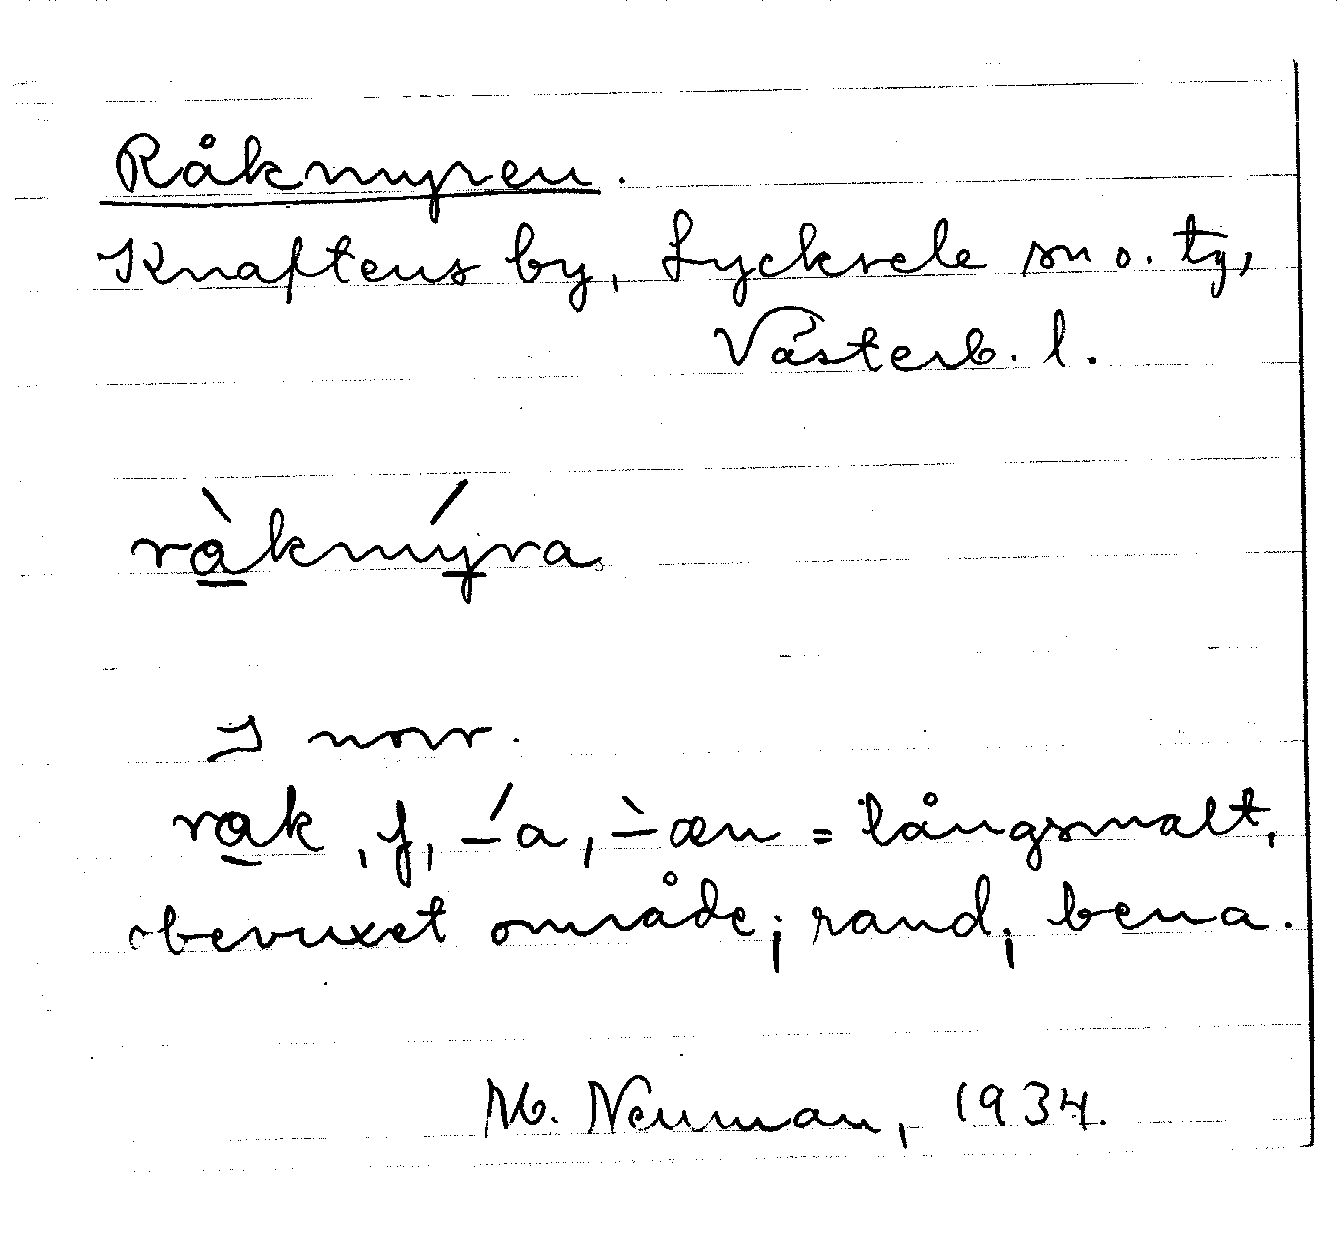 Råkmyren.
Knaftens by, Lycksele sn o. tg,
Västerb. l.
ràkmýra
I norr.
rak, f, –́a, –̀æn = långsmalt,
obevuxet område; rand, bena.
M. Neuman, 1934.